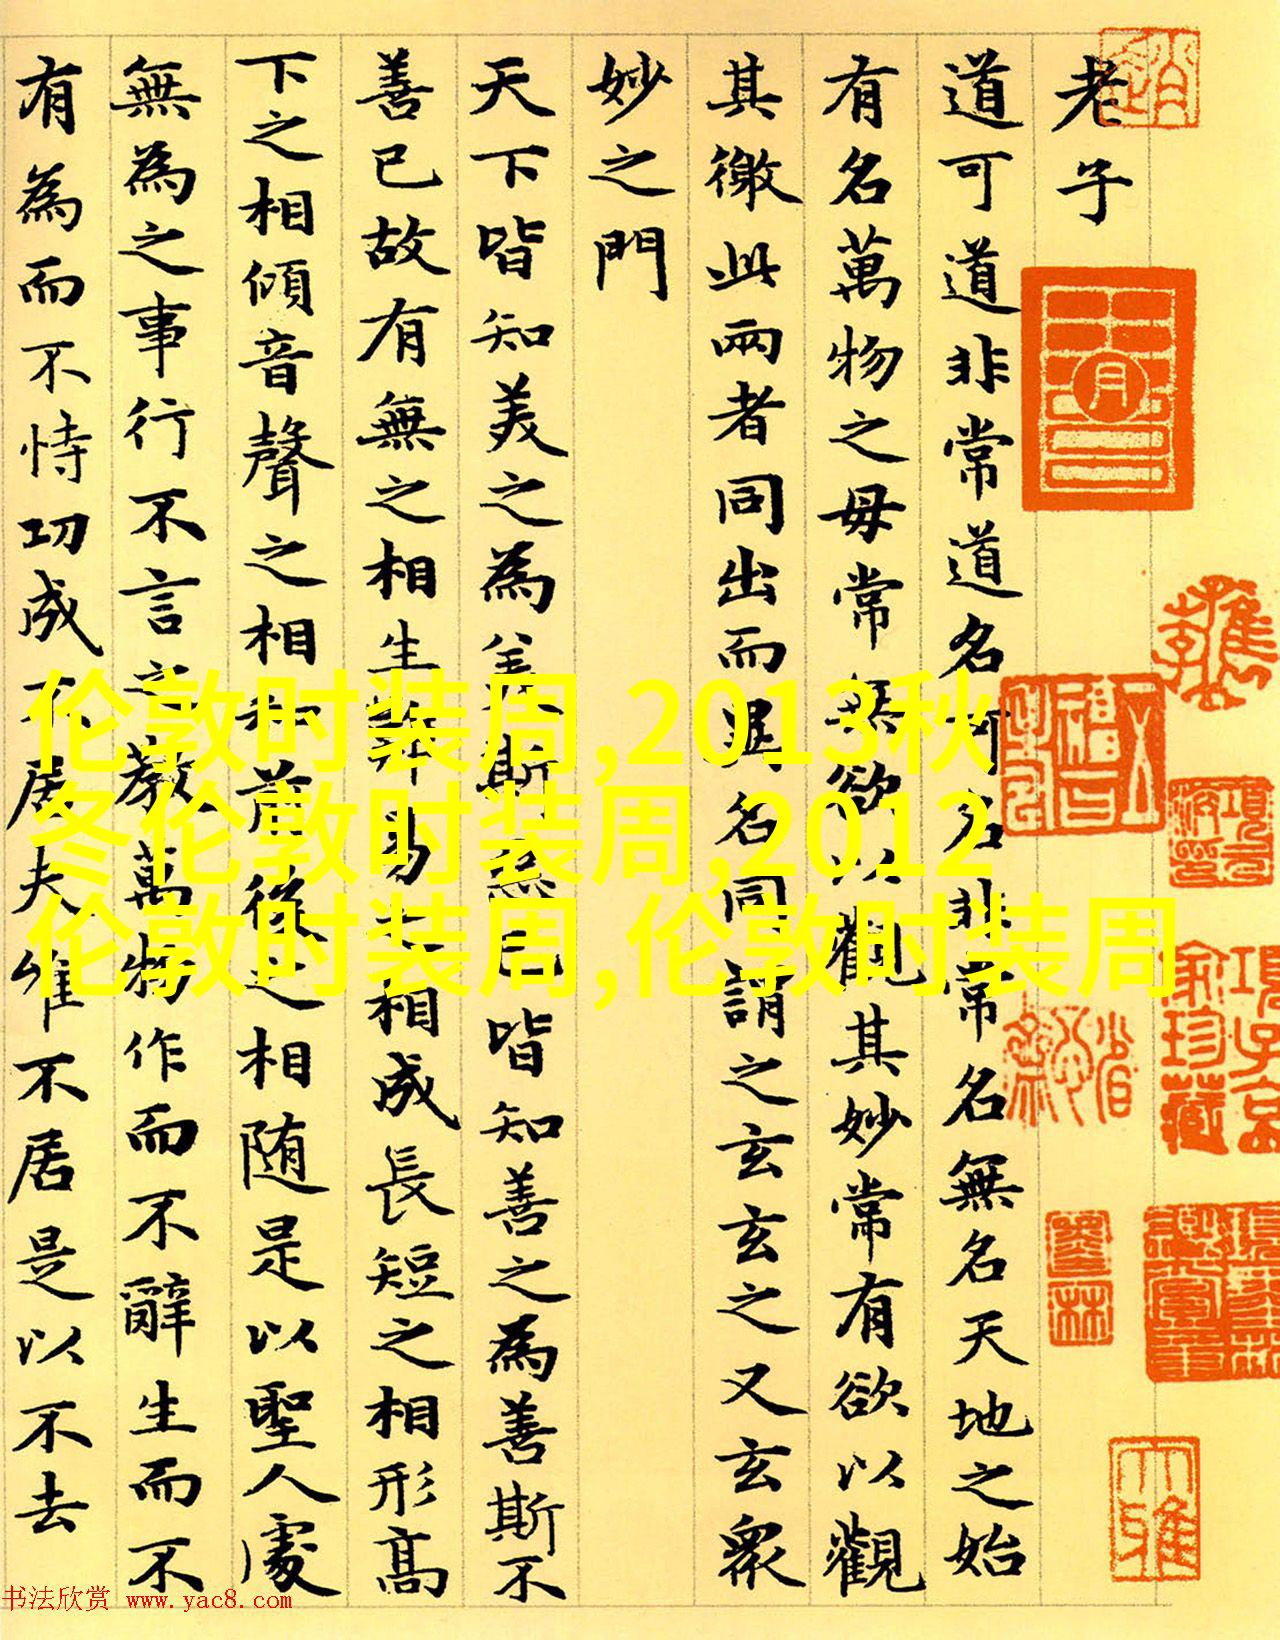 老子
道可道非常道名可名非常名無名天地之始
有名萬物之母常無欲以觀其妙常有欲以觀
其徼此兩者同出而異名同謂之玄玄之又玄衆
妙之門
天下皆知美之為美斯惡已皆知善之為善斯不
善已故有無之相生難易之相成長短之相形高
下之相傾音聲之相和前後之相随是以聖人處
無為之事行不言之教萬物作而不辭生而不
有為而不恃功成不居夫惟不居是以不去
伦敦时装周,2013秋
冬伦敦时装周,2012
伦敦时装周,伦敦时装周
項子京家珍藏
书法欣赏 www.yac8.com